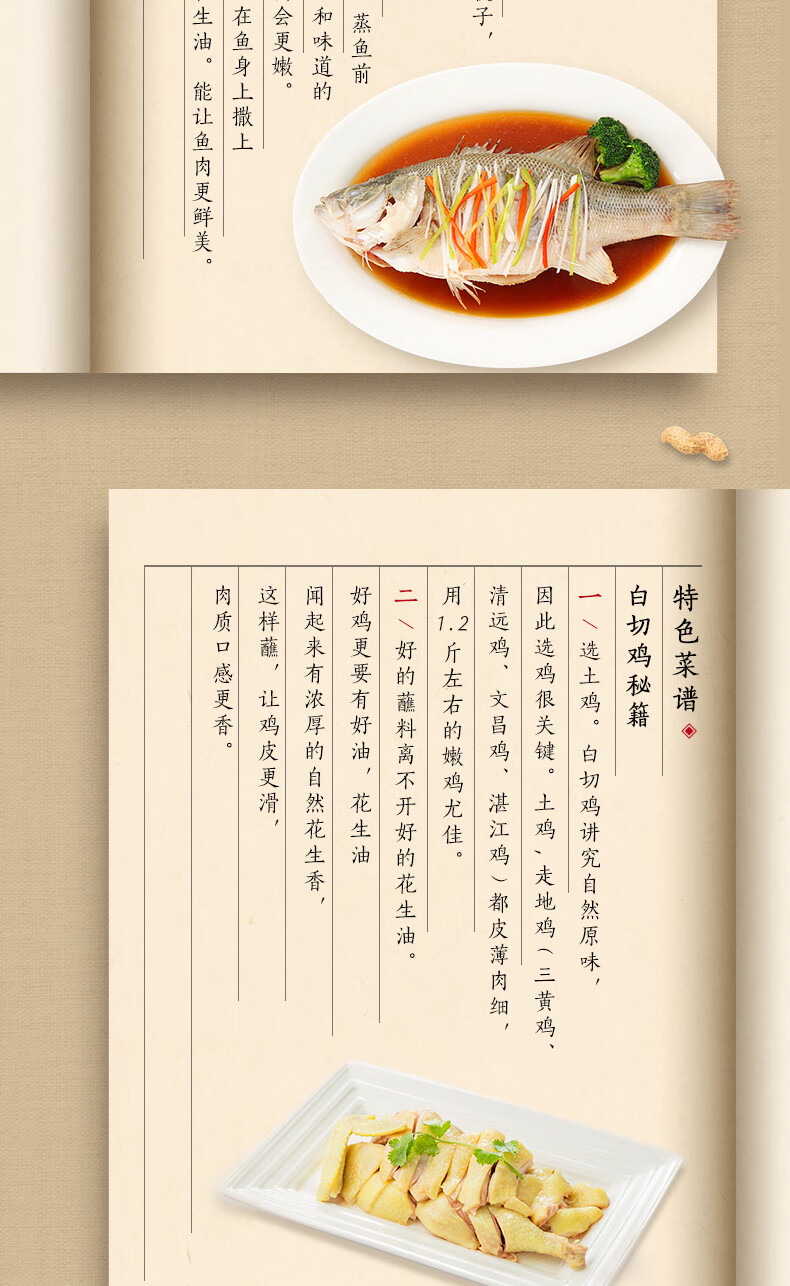 子，
蒸鱼前
和味道的
会更嫩。
在鱼身上撒上
生油。能让鱼肉更鲜美。
特色菜谱
白切鸡秘籍
一\选土鸡。白切鸡讲究自然原味，
因此选鸡很关键。土鸡、走地鸡（三黄鸡、
清远鸡、文昌鸡、湛江鸡）都皮薄肉细，
用1.2斤左右的嫩鸡尤佳。
二\好的蘸料离不开好的花生油。
好鸡更要有好油，花生油
闻起来有浓厚的自然花生香，
这样蘸，让鸡皮更滑，
肉质口感更香。